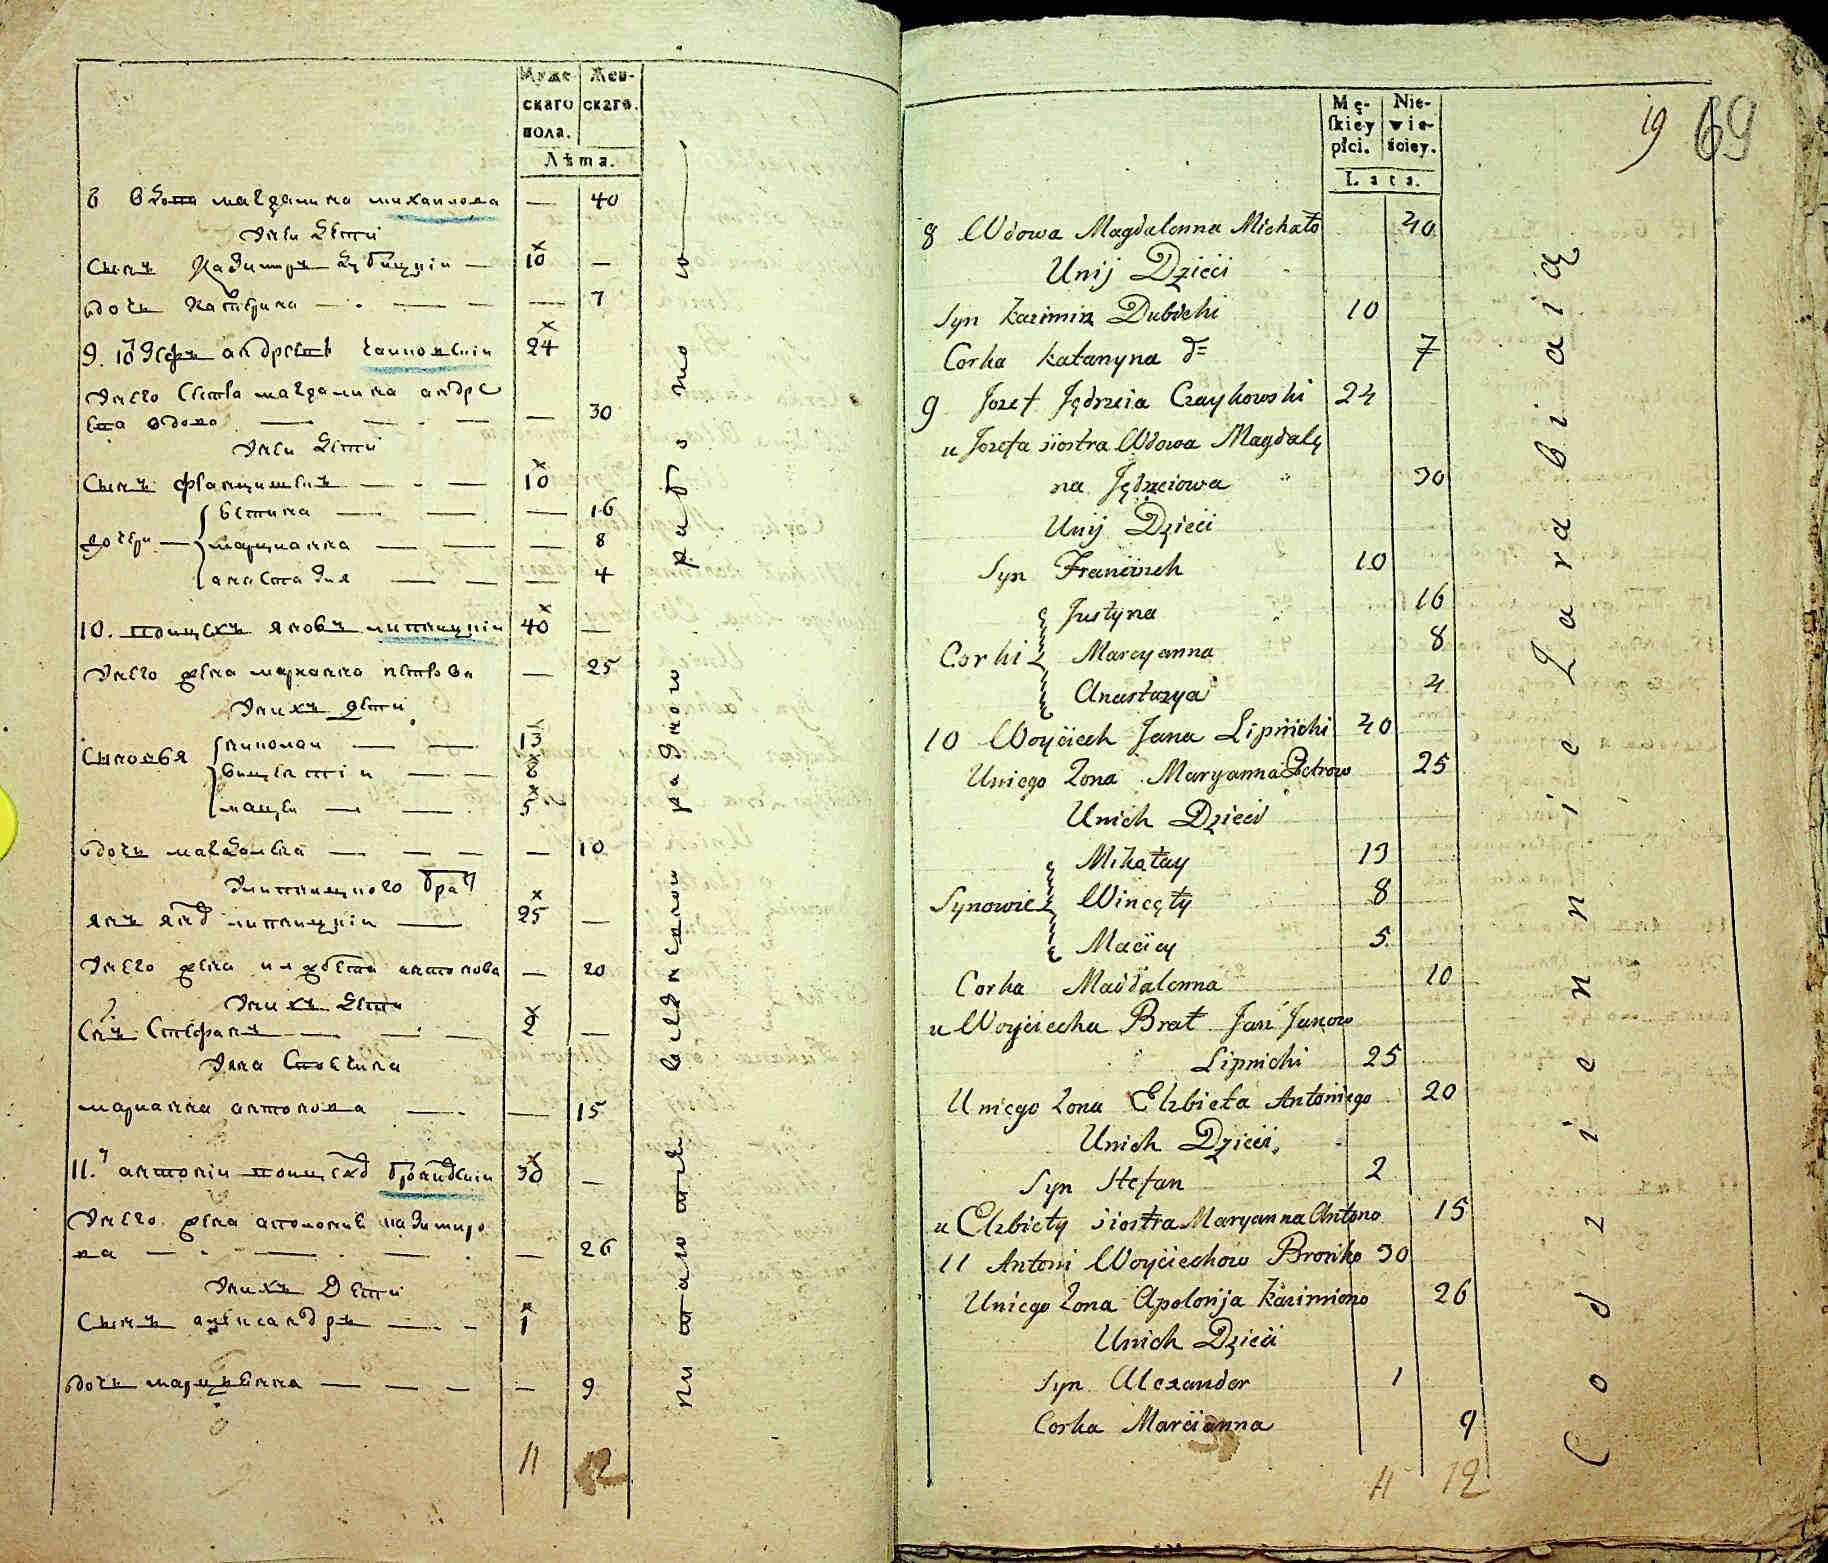 Муже
скаго
пола.
Жен-
скаго.
Лѣта.
8 вдова магдалина михаилова — 40
Унеи Дети
Сынъ Казимиръ Дубицкіи — 10 —
Дочь Катерина — — 7
9. Іозефъ андреевъ чаиковскіи 24
Унего сестра магдалина андре
ева вдова — — 30
Унеи Дети
Сынъ францишекъ — 10
юстина — — 16
дочери марцианна — — 8
анастазия — — 4
10. воицехъ яновъ липницкіи 40 —
Унего жена марианна петрова — 25
Унихъ дети
миколаи — 13
Сыновья винцентіи — 8
мацеи — 5
Дочь магдалена — — 10
Улипницкого братъ
янъ янов липницкіи — 25 —
Унего жена илжбета антонова — 20
Унихъ Дети
Сынъ Стефанъ — 2 —
марианна антонова — — 15
11. антоніи воицехов 30 —
Унего жена аполония казимиро
ва — — 26
Унихъ Дети
Сынъ александръ — 1
Дочь марцианна — — 9
11 12
питаются вседневною работою
19 69
Mę-
skiey
płci.
Nie-
wie-
ściey.
Lata.
8 Wdowa Magdalenna Michało 40
Unij Dzieci
Syn Kazimirz Dubicki 10
Corka Katarzyna d= 7
9 Jozef Jędrzeia Czaykowski 24
u Jozefa siostra Wdowa Magdalę
na Jędrzeiowa 30
Unij Dzieci
Syn Franciszek 10
Justyna 16
Corki Marcyanna 8
Anastazya 4
10 Woyciech Jana Lipnicki 40
Uniego Zona Maryanna Petrow 25
Unich Dzieci
Mikołay 13
Synowie Wincęty 8
Maciey 5
Corka Magdalenna 10
u Woyciecha Brat Jan Janow
Lipnicki 25
Uniego Zona Elzbieta Antoniego 20
Unich Dzieci
Syn Stefan 2
u Elzbiety siostra Maryanna Antono 15
11 Antoni Woyciechow Bronko 30
Uniego Zona Apolonija Kazimiro 26
Unich Dzieci
Syn Alexander 1
Corka Marcianna 9
11 12
Codziennie Zarabiaią